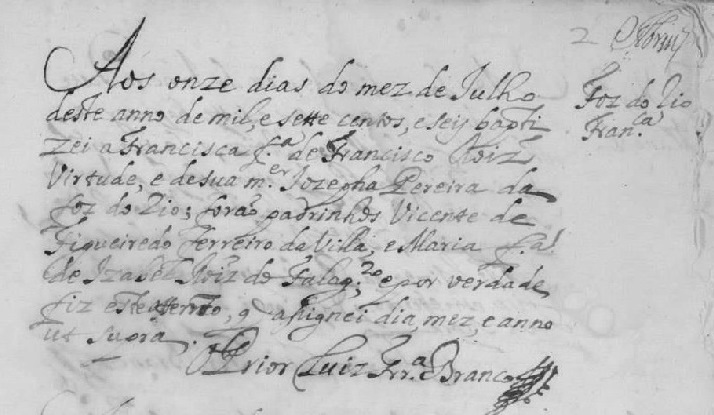 2
Foz do Rio
Fran.ca
Aos onze dias do mez de Julho
deste anno de mil, e sette centos, e seis bapti
zei a Francisca f.a de Francisco Roiz
Virtude, e de sua m.er Jozepha Pereira da
foz do Rio; forão padrinhos Vicente de
Figueiredo Ferreiro da Villa, e Maria f.a
de Izabel Roiz do e por verdade
fiz este q asignei dia, mez, e anno
ut supra.
O Prior Luiz Frr.a Branco